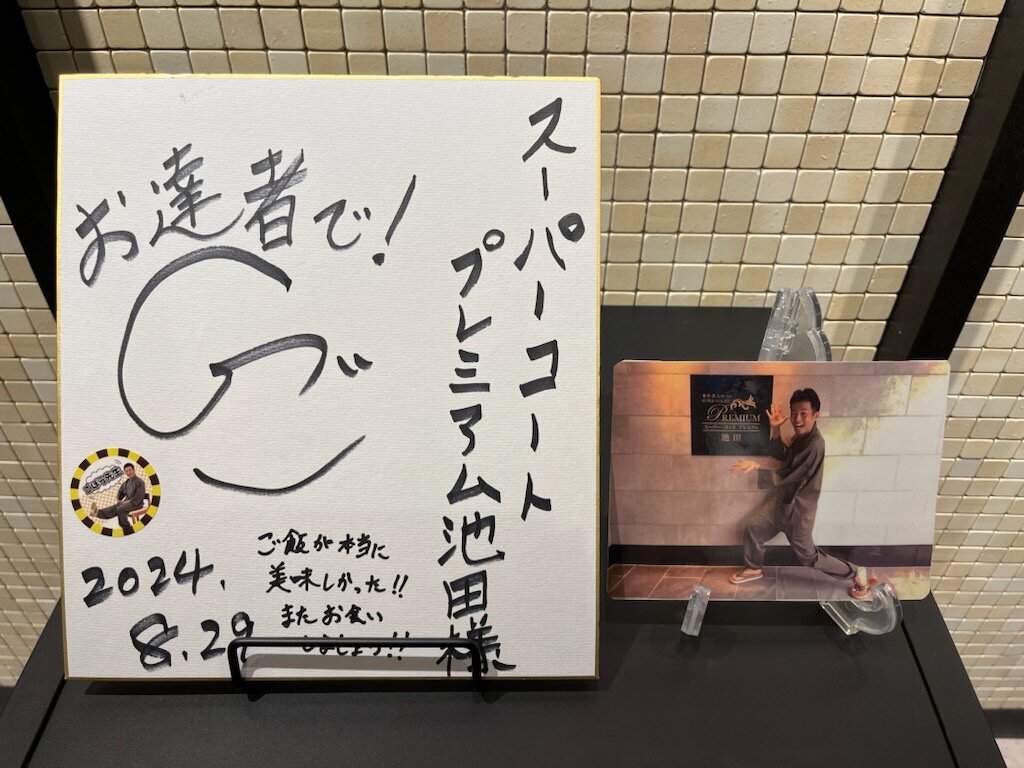 スーパーコート
プレミアム池田様
お達者で!
2024.
8.29
ご飯が本当に
美味しかった!!
またお食い
しましょう!!
PREMIUM
スーパー・コート プレミアム
池田